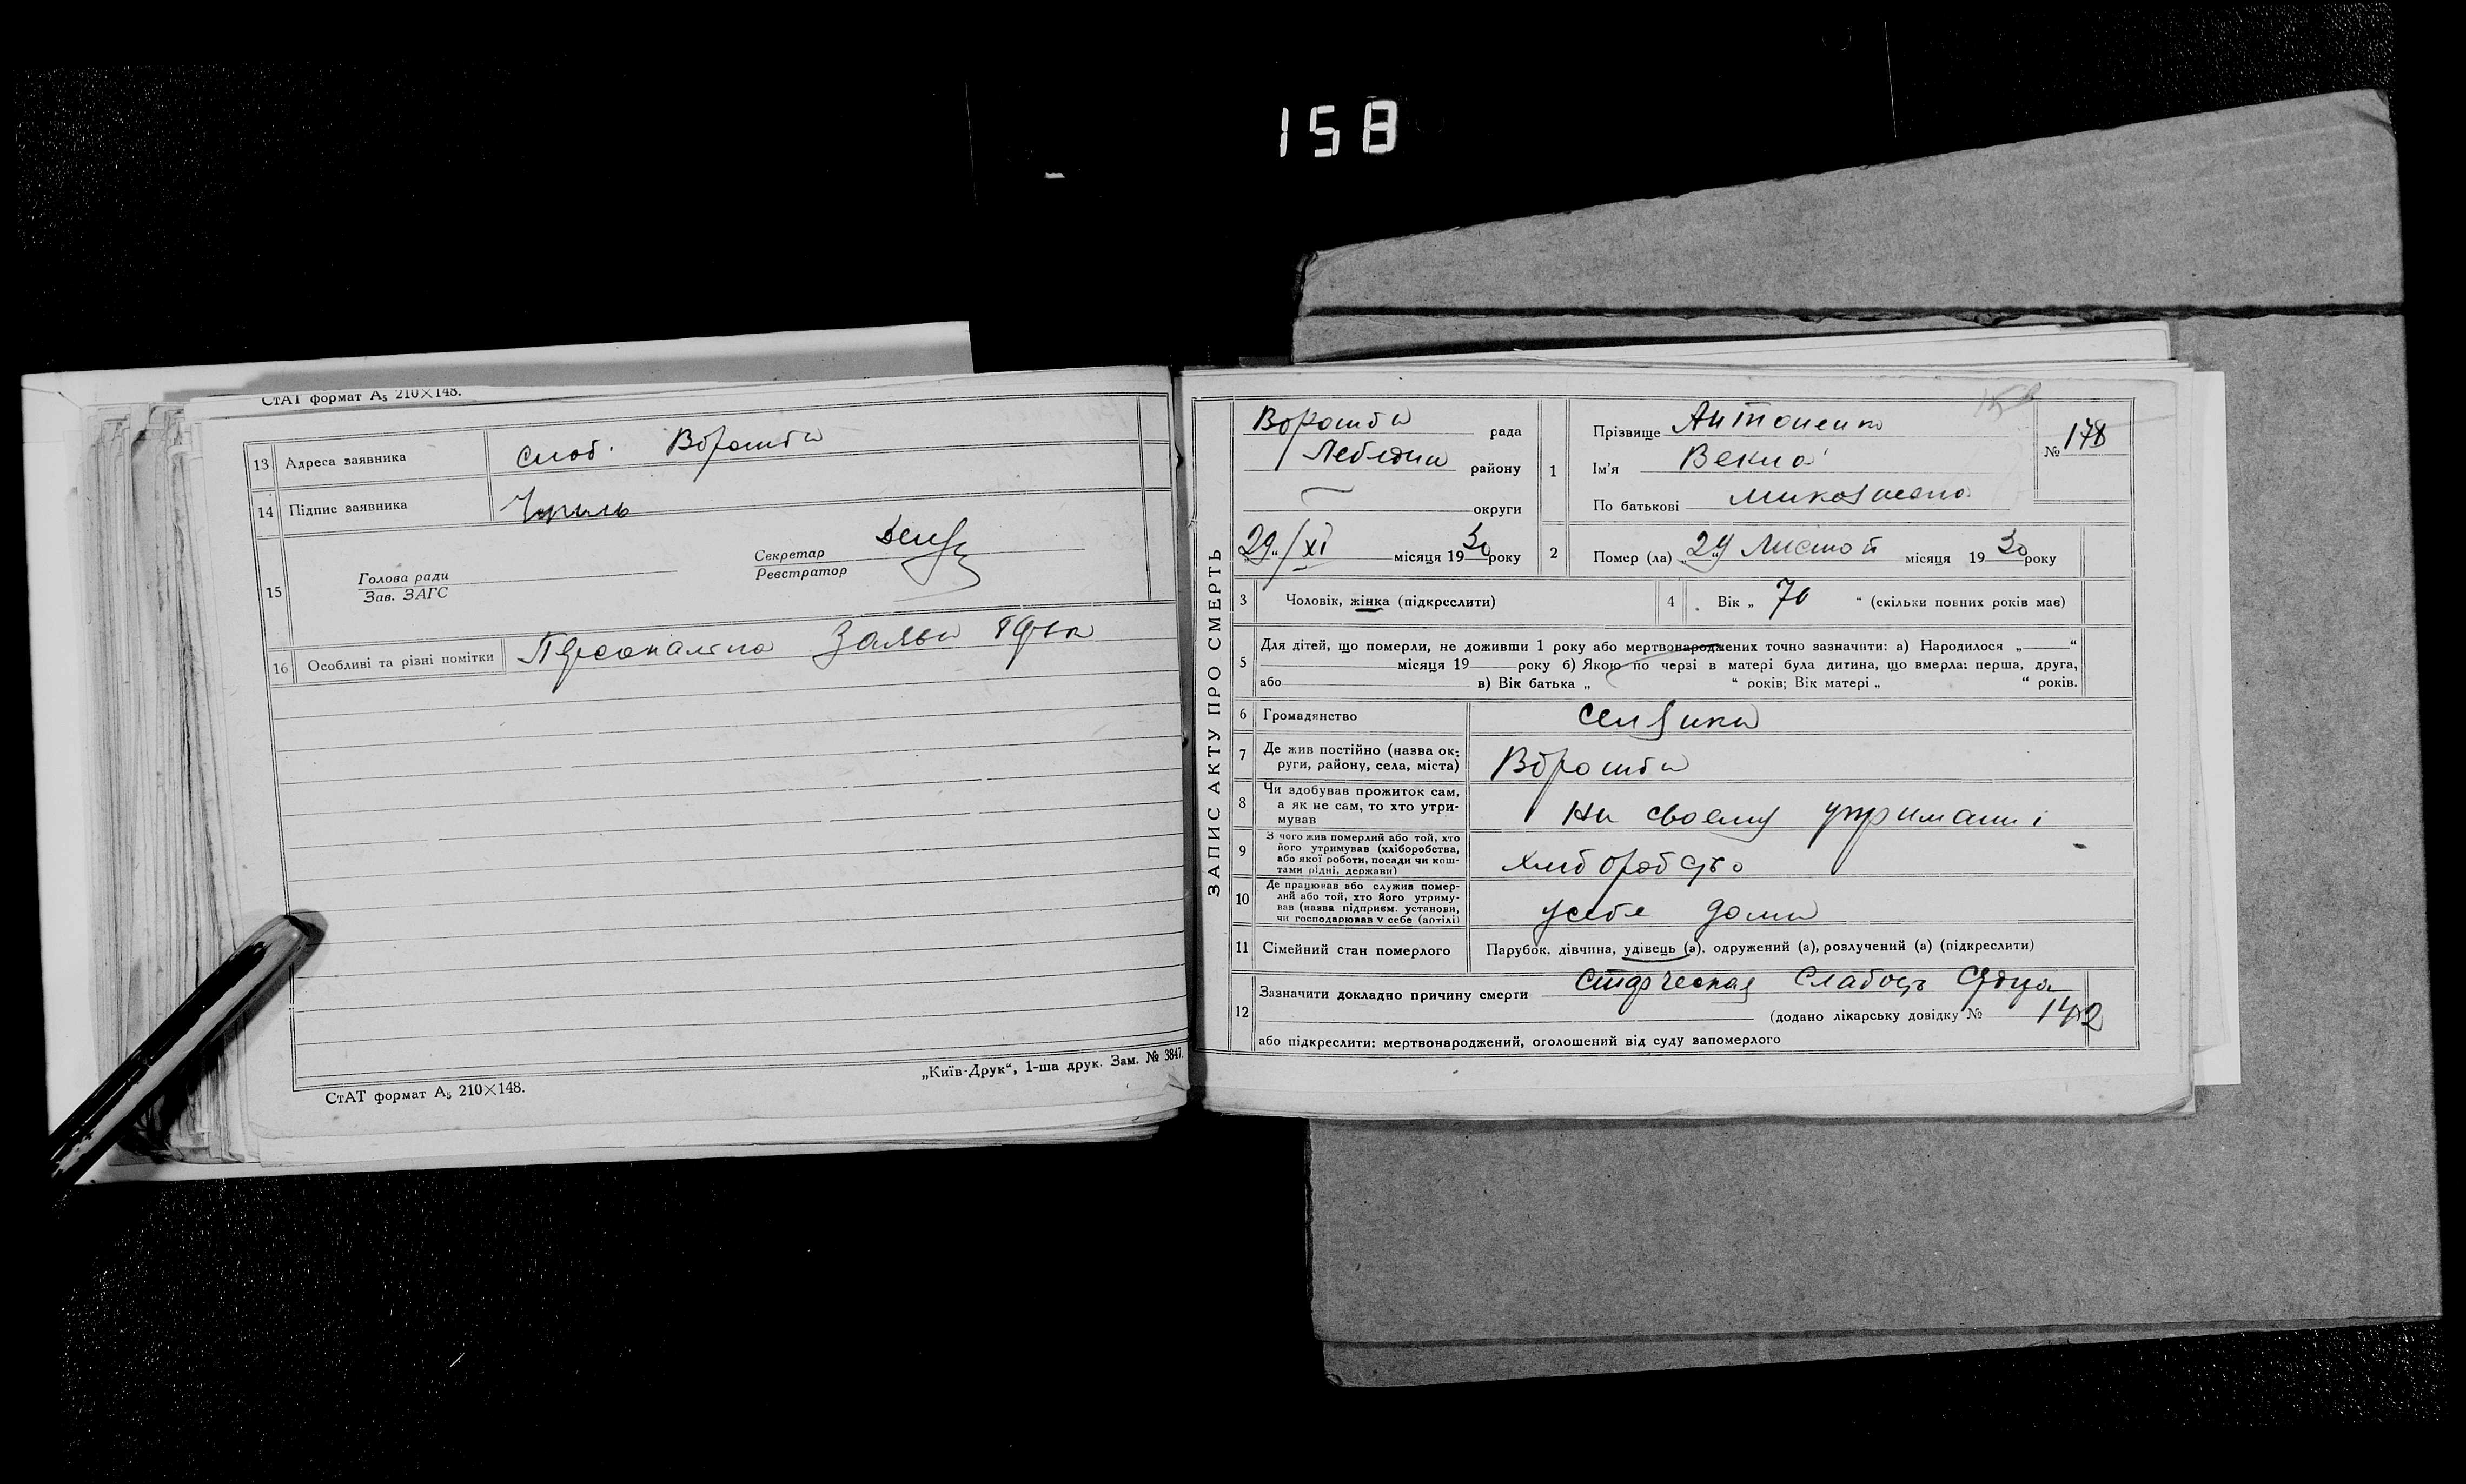 158
СтАТ формат А₅ 210×148.
13 Адреса заявника слоб. Ворожба
14 Підпис заявника
15 Голова ради
Зав. ЗАГС
Секретар
Реєстратор
16 Особливі та різні помітки Персонально Заяви
„Київ-Друк“, 1-ша друк. Зам. № 3847.
СтАТ формат А₅ 210×148.
ЗАПИС АКТУ ПРО СМЕРТЬ
Ворожба рада
Лебедин району
округи
„29“/XI місяця 1930 року
1 Прізвище Антоненко
Ім'я Векла
По батькові
№ 178
2 Помер (ла) „29“ Листоп місяця 1930 року
3 Чоловік, жінка (підкреслити)
4 Вік „ 70 “ (скільки повних років має)
5 Для дітей, що померли, не доживши 1 року або мертвонароджених точно зазначити: а) Народилося „ “
місяця 19 року б) Якою по черзі в матері була дитина, що вмерла: перша, друга,
або в) Вік батька „ “ років; Вік матері „ “ років.
6 Громадянство селянка
7 Де жив постійно (назва ок-
руги, району, села, міста) Ворожба
8 Чи здобував прожиток сам,
а як не сам, то хто утри-
мував На своему утриманні
9 З чого жив померлий або той, хто
його утримував (хліборобства,
або якої роботи, посади чи кош-
тами рідні, держави) хліборобство
10 Де працював або служив помер-
лий або той, хто його утриму-
вав (назва підприєм. установи,
чи господарював у себе (артілі) усебе дома
11 Сімейний стан померлого Парубок, дівчина, удівець (а), одружений (а), розлучений (а) (підкреслити)
12 Зазначити докладно причину смерти Старческая Слабость Сердца
(додано лікарську довідку № 142
або підкреслити: мертвонароджений, оголошений від суду запомерлого